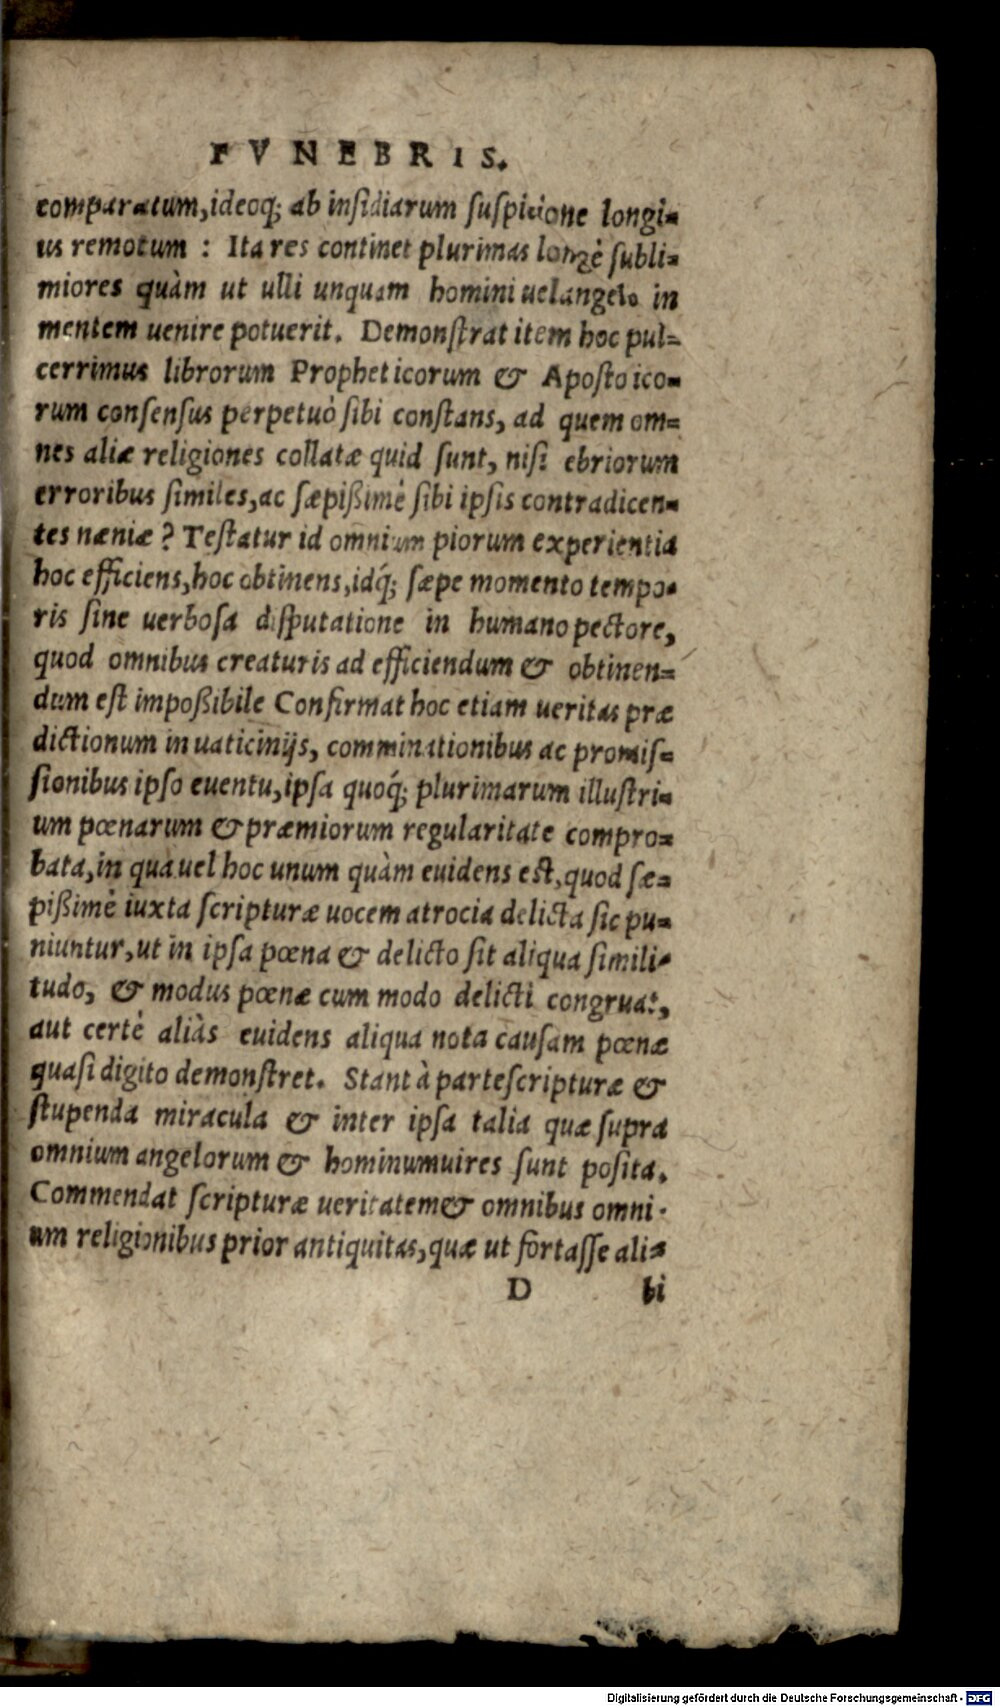 FVNEBRIS.
comparatum, ideoq; ab insidiarum suspicione longi=
us remotum : Ita res continet plurimas longè subli=
miores quàm ut ulli unquam homini uel angelo in
mentem uenire potuerit. Demonstrat item hoc pul=
cerrimus librorum Propheticorum & Aposto ico=
rum consensus perpetuò sibi constans, ad quem om=
nes aliæ religiones collatæ quid sunt, nisi ebriorum
erroribus similes, ac sæpißimè sibi ipsis contradicen=
tes næniæ? Testatur id omnium piorum experientia
hoc efficiens, hoc obtinens, idq́; sæpe momento tempo=
ris sine uerbosa disputatione in humano pectore,
quod omnibus creaturis ad efficiendum & obtinen=
dum est impoßibile Confirmat hoc etiam ueritas præ
dictionum in uaticinijs, comminationibus ac promis=
sionibus ipso euentu, ipsa quoq́; plurimarum illustri=
um pœnarum & præmiorum regularitate compro=
bata, in qua uel hoc unum quàm euidens est, quod sæ=
pißimè iuxta scripturæ uocem atrocia delicta sic pu=
niuntur, ut in ipsa pœna & delicto sit aliqua simili=
tudo, & modus pœnæ cum modo delicti congruat,
aut certè aliàs euidens aliqua nota causam pœnæ
quasi digito demonstret. Stant à parte scripturæ &
stupenda miracula & inter ipsa talia quæ supra
omnium angelorum & hominum uires sunt posita.
Commendat scripturæ ueritatem & omnibus omni=
um religionibus prior antiquitas, quæ ut fortasse ali=
D bi
Digitalisierung gefördert durch die Deutsche Forschungsgemeinschaft - DFG